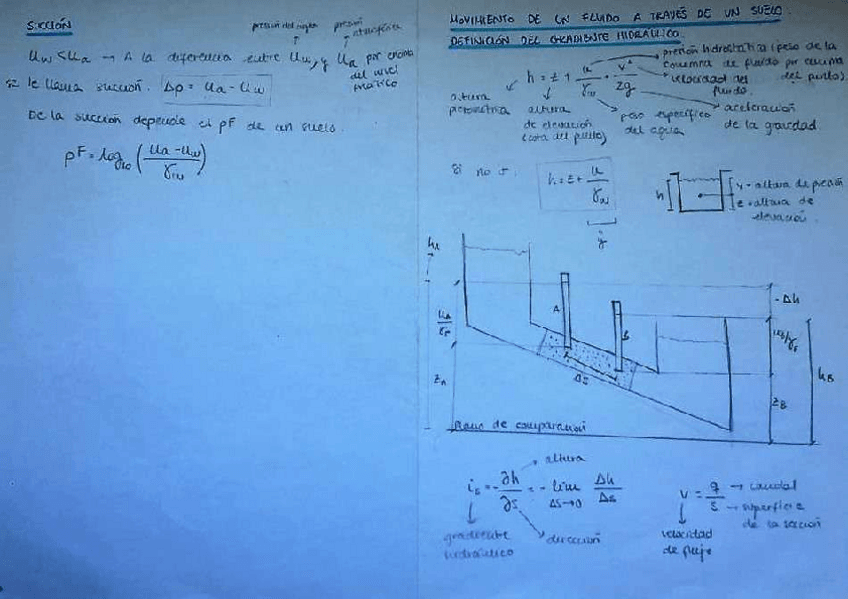 SUCCIÓN
presión del agua
presión atmosférica
uw < ua → A la diferencia entre uw, y ua por encima del nivel freático
se le llama succión. Δp = ua - uw
De la succión depende el pF de un suelo.
pF = log10 (ua - uw / γw)
MOVIMIENTO DE UN FLUIDO A TRAVÉS DE UN SUELO.
DEFINICIÓN DEL GRADIENTE HIDRÁULICO.
presión hidrostática (peso de la columna de fluido por encima del punto)
h = z + u/γw + v²/2g
velocidad del fluido.
altura piezométrica
altura de elevación (cota del punto)
peso específico del agua
aceleración de la gravedad.
Si no
h = z + u/γw
h
y = altura de presión
z = altura de elevación
hA
uA/γF
zA
A
B
Δs
-Δh
uB/γF
zB
hB
Plano de comparación
is = - ∂h/∂s = - lim Δs→0 Δh/Δs
altura
gradiente hidráulico
dirección
v = q/s
caudal
superficie de la sección
velocidad de flujo